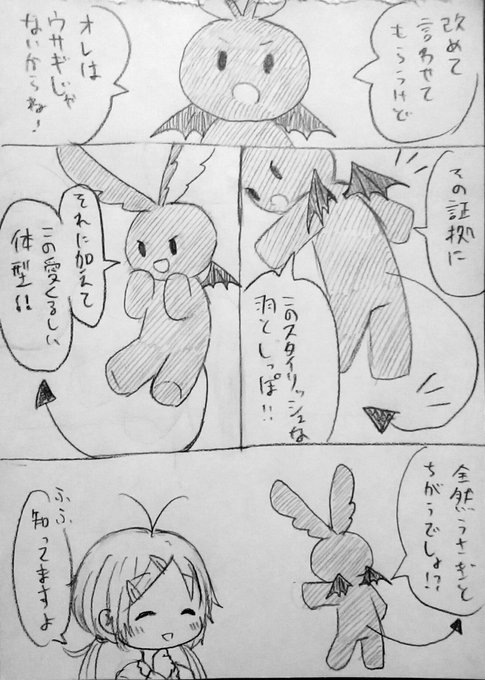 改めて
言わせて
もらうけど
オレは
ウサギじゃ
ないからね!
その証拠に
このスタイリッシュな
羽としっぽ!!
それに加えて
この愛くるしい
体型!!
全然うさぎと
ちがうでしょ!?
ふふ
知ってますよ